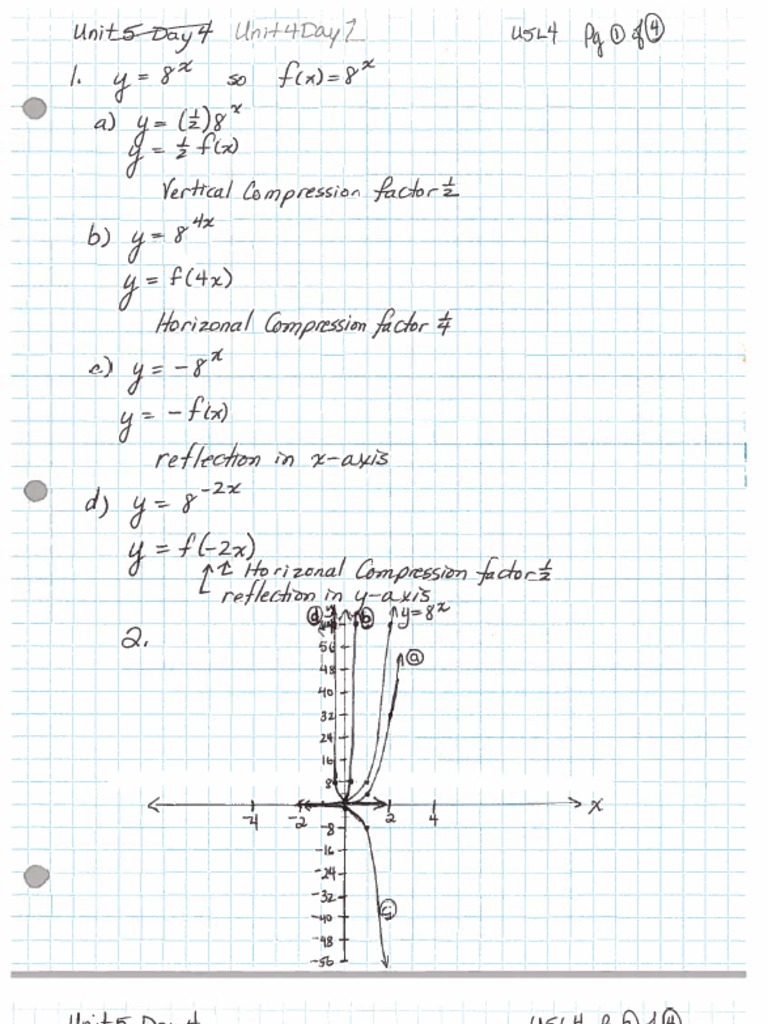 Unit 5 Day 4 Unit 4 Day 2 U5L4 Pg ① of ④
1. y = 8^x so f(x) = 8^x
a) y = (1/2)8^x
y = 1/2 f(x)
Vertical Compression factor 1/2
b) y = 8^4x
y = f(4x)
Horizonal Compression factor 1/4
c) y = -8^x
y = -f(x)
reflection in x-axis
d) y = 8^-2x
y = f(-2x)
↑ ↑ Horizonal Compression factor 1/2
reflection in y-axis
2.
ⓓ y ⓑ y=8^x
64
56
ⓐ
48
40
32
24
16
8
-4 -2 2 4 x
-8
-16
-24
-32
ⓒ
-40
-48
-56
Unit 5 Day 4 U5L4